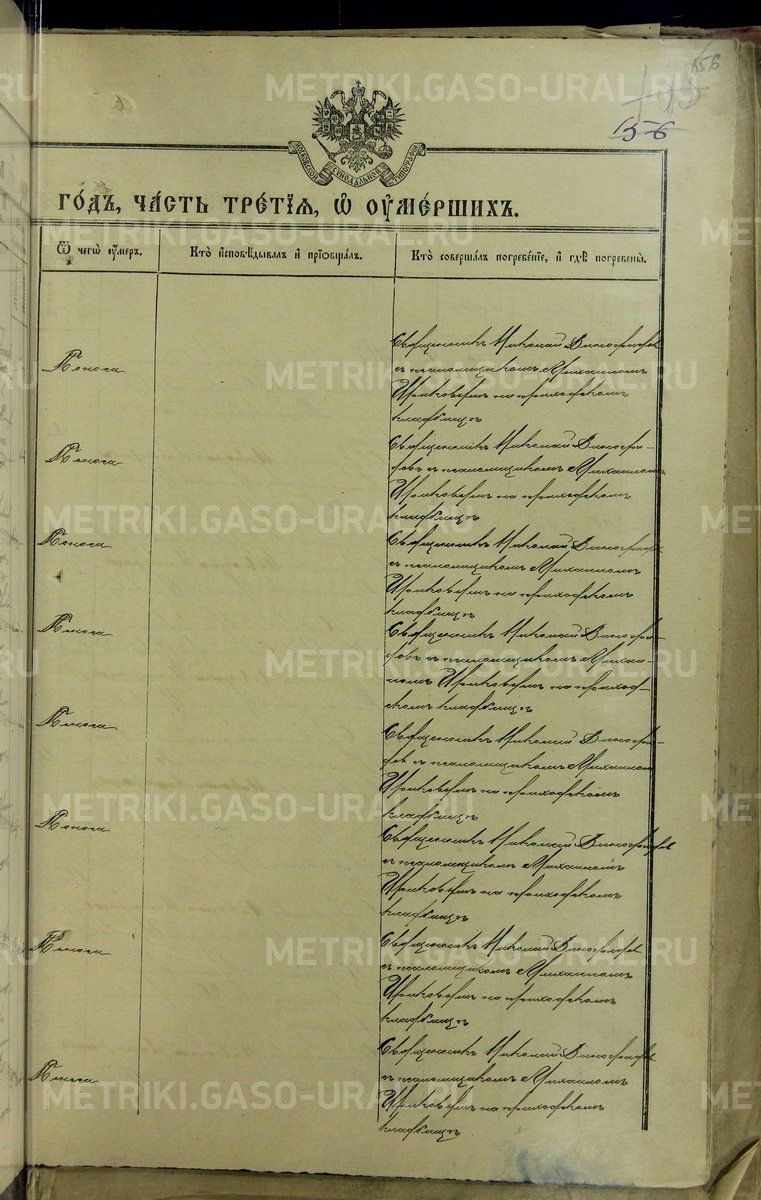 156
156
МОСКОВСКОЙ СѴНОДАЛЬНОЙ ТИПОГРАФІИ
ГО́ДЪ, ЧА́СТЬ ТРЕ́ТІѦ, Ѡ҆ ОУ҆МЕ́РШИХЪ.
Ѿ чегѡ̀ оу҆́меръ.
Кто̀ и҆сповѣ́дывалъ и҆ прїѻбща́лъ.
Кто̀ соверша́лъ погребе́нїе, и҆ гдѣ̀ погребены̀.
Поноса
Священникъ Николай Виноградов
съ псаломщикомъ Михаилом
на приходском
кладбищѣ
Поноса
Священникъ Николай Виногра-
довъ съ псаломщикомъ Михаиломъ
на приходскомъ
кладбищѣ
Поноса
Священникъ Николай Виноградов
съ псаломщикомъ Михаиломъ
на приходскомъ
кладбищѣ
Поноса
Священникъ Николай Виногра-
довъ съ псаломщикомъ Михаи-
ломъ на приход-
скомъ кладбищѣ
Поноса
Священникъ Николай Виногра-
довъ съ псаломщикомъ Михаилом
на приходскомъ
кладбищѣ
Поноса
Священникъ Николай Виноградов
съ псаломщикомъ Михаиломъ
на приходскомъ
кладбищѣ
Поноса
Священникъ Николай Виноградов
съ псаломщикомъ Михаиломъ
на приходскомъ
кладбищѣ
Поноса
Священникъ Николай Виноградов
съ псаломщикомъ Михаиломъ
на приходскомъ
кладбищѣ
METRIKI.GASO-URAL.RU